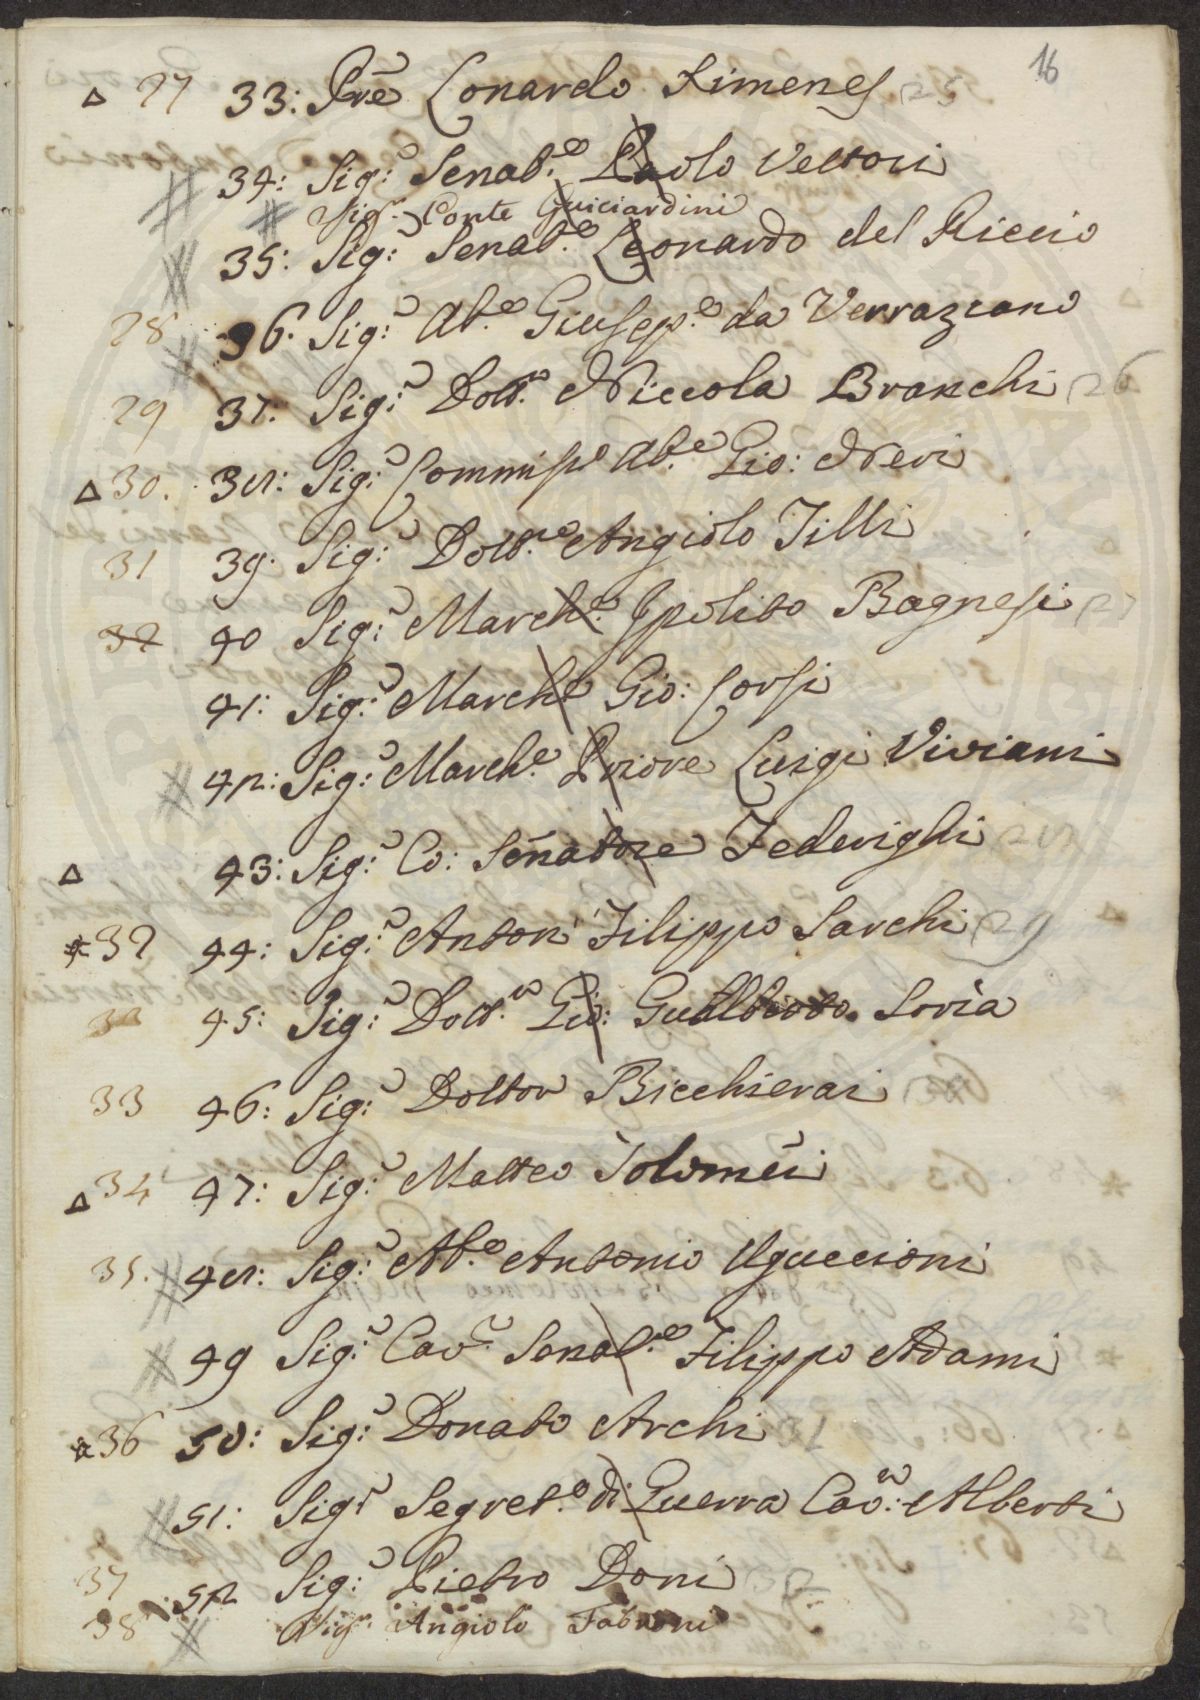 16
△ 27 33: Pre Lonardo Ximenes 25
34: Sig:r Senat:e Paolo Vettori
Sigr. Conte Guiciardini
35: Sig:r Senat:e Leonardo del Riccio
28 36. Sig:r Ab:e Giusep:e da Verrazzano
29 37. Sig:r Dott:re Niccola Branchi 26
△ 30. 38: Sig:r Commiss:o Ab:e Gio: Neri
31 39. Sig:r Dott:re Angiolo Tilli
32 40 Sig:r March:e Ipolito Bagnesi 27
41: Sig:r March:e Gio: Corsi
42: Sig:r March:e Priore Luigi Viviani
△ 43: Sig:r Co: Senatore Federighi 28
* 32 44: Sig:r Anton Filippo Sarchi 29
45: Sig:r Dott:r Gio: Gualberto Soria
33 46: Sig:r Dottor Bicchierai
△ 34 47: Sig:r Matteo Tolomei
35. 48: Sig:r Ab:e Antonio Uguccioni
49 Sig:r Cav:r Senat:re Filippo Adami
* 36 50: Sig:r Donato Archi
51: Sigr Segret:o di Guerra Cav:r Alberti
37 52 Sig:r Pietro Doni
38 Sigr. Angiolo Fabroni